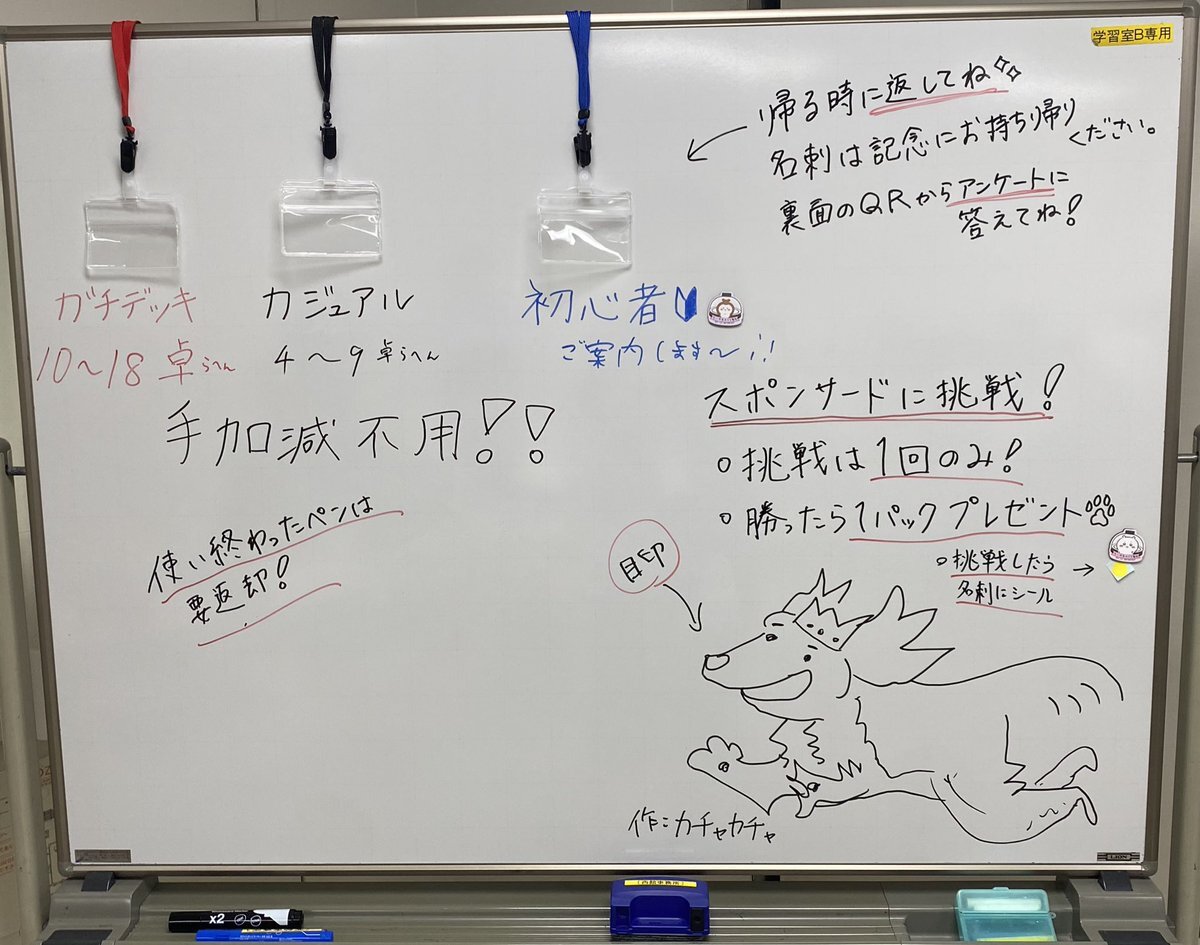 学習室B専用
帰る時に返してね
名刺は記念にお持ち帰り
ください。
裏面のQRからアンケートに
答えてね!
ガチデッキ
10〜18卓らへん
カジュアル
4〜9卓らへん
初心者
ご案内します〜!!
手加減不用!!
使い終わったペンは
要返却!
スポンサードに挑戦!
○挑戦は1回のみ!
○勝ったら1パックプレゼント
○挑戦したら→
名刺にシール
目印
作:カチャカチャ
LION
x2